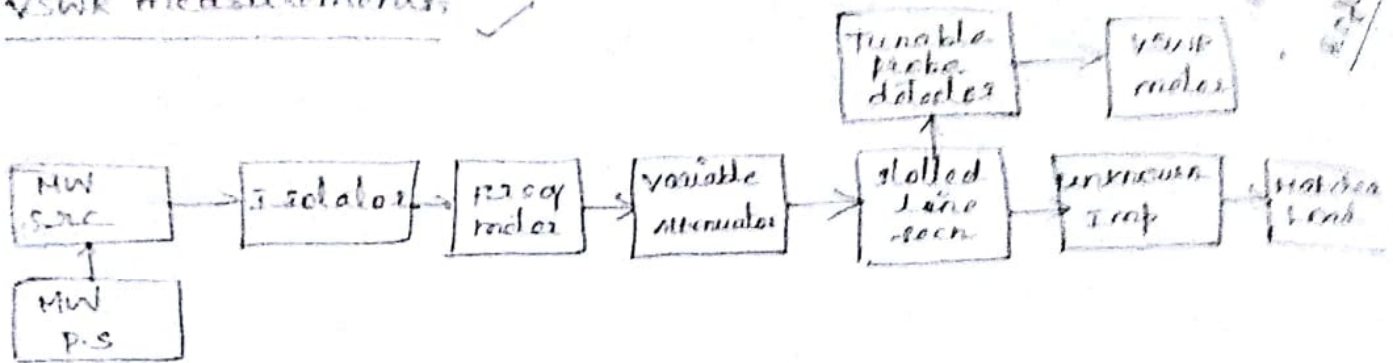 VSWR measurements,
Tunable
probe
detector
VSWR
meter
MW
Src
Isolator
Freq
meter
Variable
Attenuator
slotted
line
secn
unknown
Imp
Matched
Load
MW
P.S